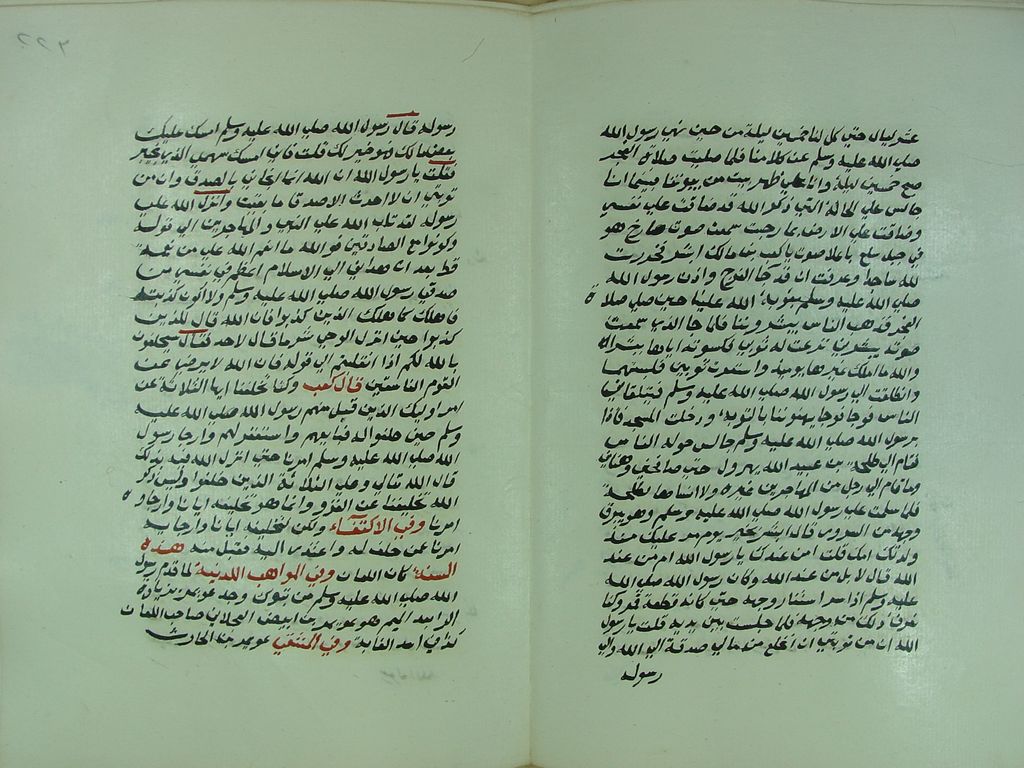 عشر ليال حتى كمل لنا خمسين ليلة من حين نهى رسول الله
صلى الله عليه وسلم عن كلامنا فلما صليت صلاة الفجر
صبح خمسين ليلة وانا على ظهر بيت من بيوتنا فبينما انا
جالس على الحالة التي ذكر الله قد ضاقت علي نفسي
وضاقت علي الارض بما رحبت سمعت صوت صارخ هو
في جبل سلع باعلا صوت يا كعب بن مالك ابشر فخررت
لله ساجدا وعرفت ان قد جا الفرج واذن رسول الله
صلى الله عليه وسلم بتوبة الله علينا حين صلى صلاة
الفجر فذهب الناس يبشروننا فلما جا الذي سمعت
صوته يبشرني نزعت له ثوبي فكسوته اياهما ببشراه
والله ما املك غيرهما يوميذ واستعرت ثوبين فلبستهما
وانطلقت الى رسول الله صلى الله عليه وسلم فيتلقاني
الناس فوجا فوجا يهنونا بالتوبة ودخلت المسجد فاذا
برسول الله صلى الله عليه وسلم جالس حوله الناس
فقام الي طلحة بن عبيد الله يهرول حتى صافحني وهناني
وما قام الي رجل من المهاجرين غيره ولا انساها لطلحة
فلما سلمت على رسول الله صلى الله عليه وسلم وهو يبرق
وجهه من السرور قال ابشر بخير يوم مر عليك منذ
ولدتك امك قلت امن عندك يا رسول الله ام من عند
الله قال لا بل من عند الله وكان رسول الله صلى الله
عليه وسلم اذا سر استنار وجهه حتى كانه قطعة قمر وكنا
نعرف ذلك من وجهه فلما جلست بين يديه قلت يا رسول
الله ان من توبتي ان انخلع من مالي صدقة الى الله والى
رسوله
رسوله قال رسول الله صلى الله عليه وسلم امسك عليك
بعض مالك فهو خير لك قلت فاني امسك سهمي الذي بخيبر
فقلت يا رسول الله ان الله انما انجاني بالصدق وان من
توبتي ان لا احدث الا صدقا ما بقيت وانزل الله على
رسوله لقد تاب الله على النبي والمهاجرين الى قوله
وكونوا مع الصادقين فوالله ما انعم الله علي من نعمة
قط بعد ان هداني الى الاسلام اعظم في نفسي من
صدقي رسول الله صلى الله عليه وسلم ولا اكون كذبته
فاهلك كما هلك الذين كذبوا فان الله قال للذين
كذبوا حين انزل الوحي شر ما قال لاحد فقال سيحلفون
بالله لكم اذا انقلبتم الى قوله فان الله لا يرضى عن
القوم الفاسقين قال كعب وكنا تخلفنا ايها الثلاثة عن
امر اوليك الذين قبل منهم رسول الله صلى الله عليه
وسلم حين حلفوا له فبايعهم واستغفر لهم وارجا رسول
الله صلى الله عليه وسلم امرنا حتى انزل الله فيه بذلك
قال الله تعالى وعلى الثلاثة الذين خلفوا وليس ذكر
الله تخليفنا عن الغزو وانما هو تخليفه ايانا وارجاوه
امرنا وفي الاكتفاء ولكن لتخليفه ايانا وارجايه
امرنا عن من حلف له واعتذر اليه فقبل منه هذه
السنة كان اللعان وفي المواهب اللدنية لما قدم رسول
الله صلى الله عليه وسلم من تبوك وجد عويمر بن
هو عويمر بن ابيض العجلاني صاحب اللعان
كذا في اسد الغابة وفي المنتقى عويمر بن الحارث